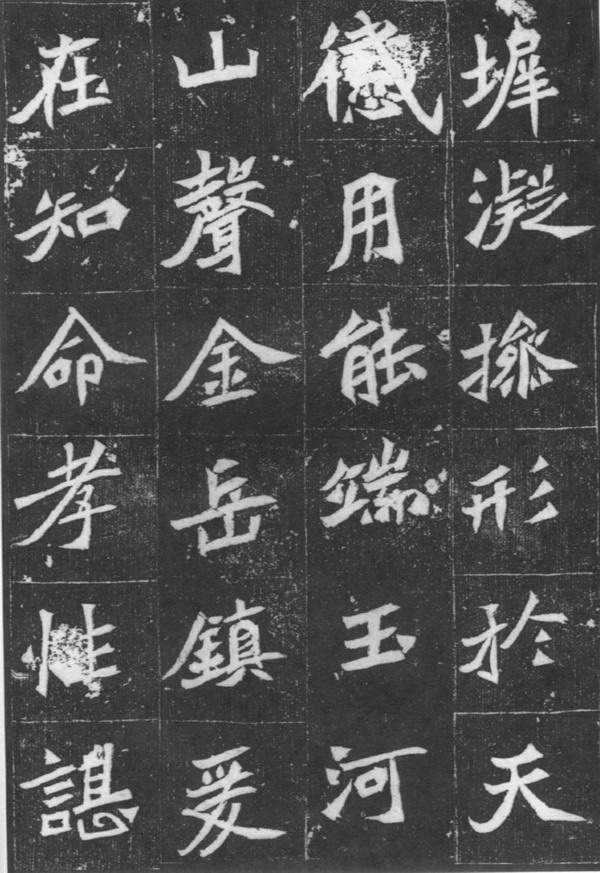 墀凝摻形於天
用能端玉河
山聲金岳鎮爰
在知命孝性諶